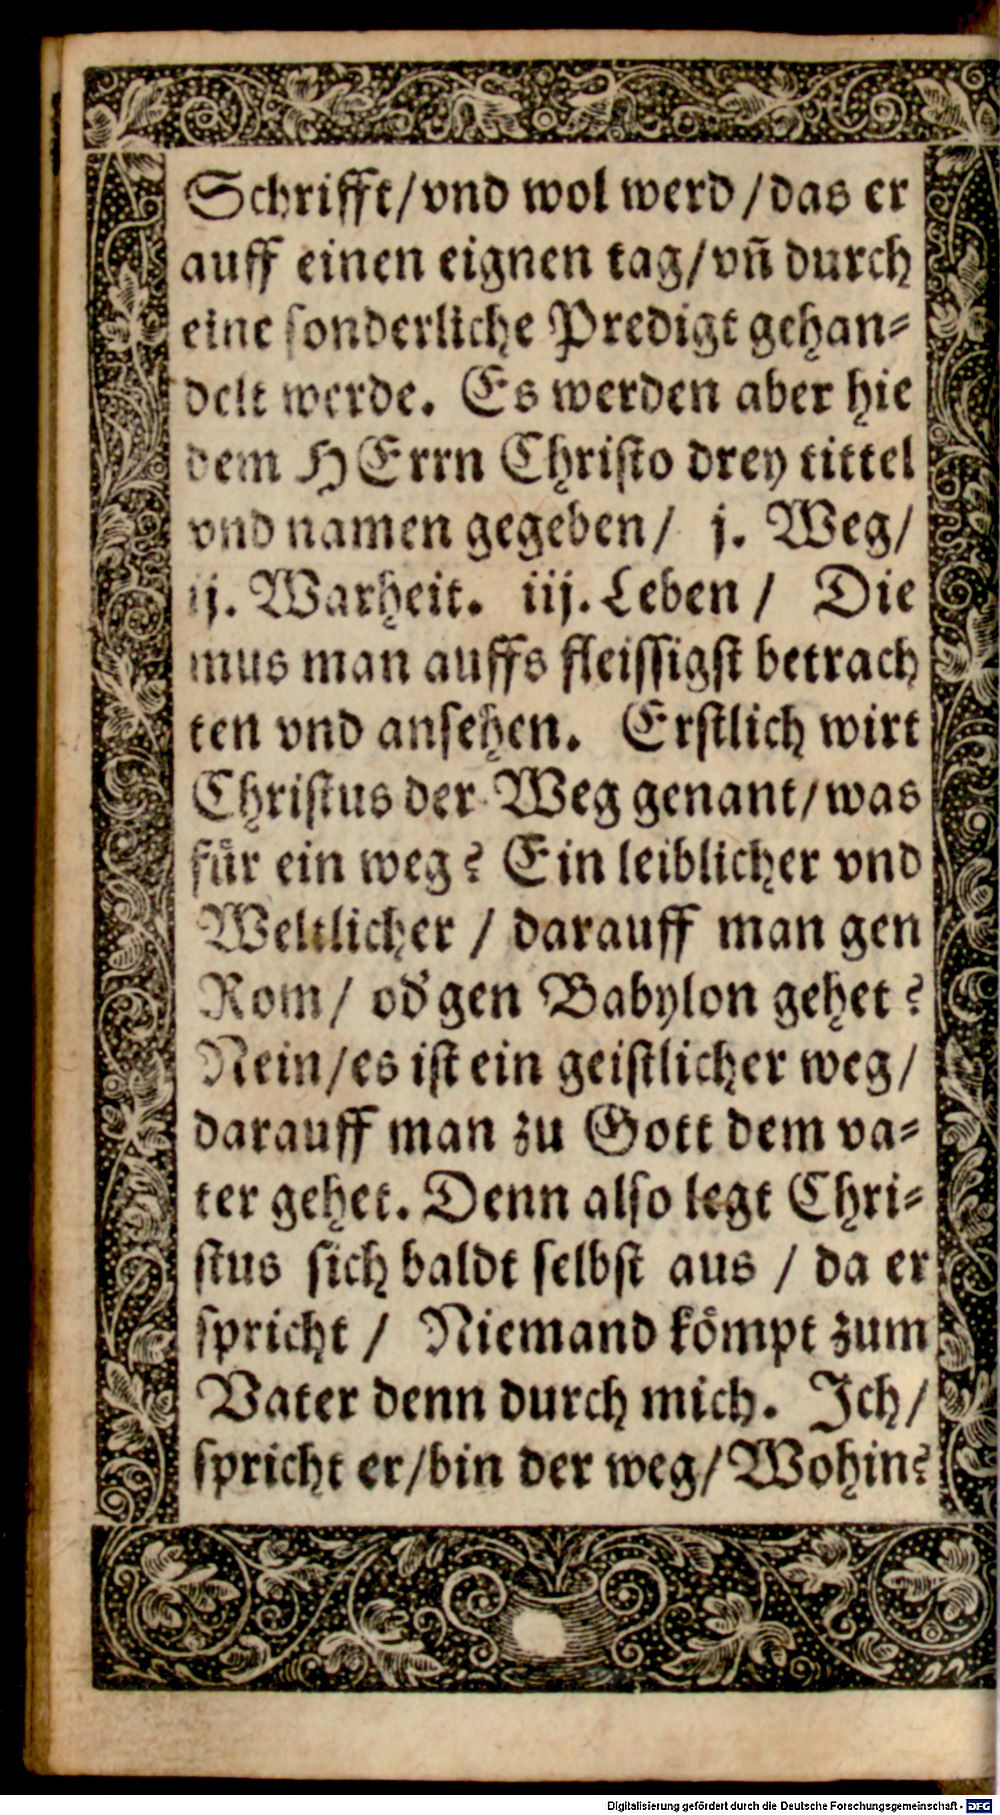 Schrifft/vnd wol werd/das er
auff einen eignen tag/vñ durch
eine ſonderliche Predigt gehan⸗
delt werde. Es werden aber hie
dem HErrn Chriſto drey tittel
vnd namen gegeben/ j. Weg/
ij. Warheit. iij. Leben/ Die
mus man auffs fleiſſigſt betrach
ten vnd anſehen. Erſtlich wirt
Chriſtus der Weg genant/was
für ein weg? Ein leiblicher vnd
Weltlicher / darauff man gen
Rom/ od' gen Babylon gehet?
Nein/es iſt ein geiſtlicher weg/
darauff man zu Gott dem va⸗
ter gehet. Denn alſo legt Chri⸗
ſtus ſich baldt ſelbſt aus / da er
ſpricht / Niemand kömpt zum
Vater denn durch mich. Ich/
ſpricht er/bin der weg/Wohin?
Digitalisierung gefördert durch die Deutsche Forschungsgemeinschaft - DFG